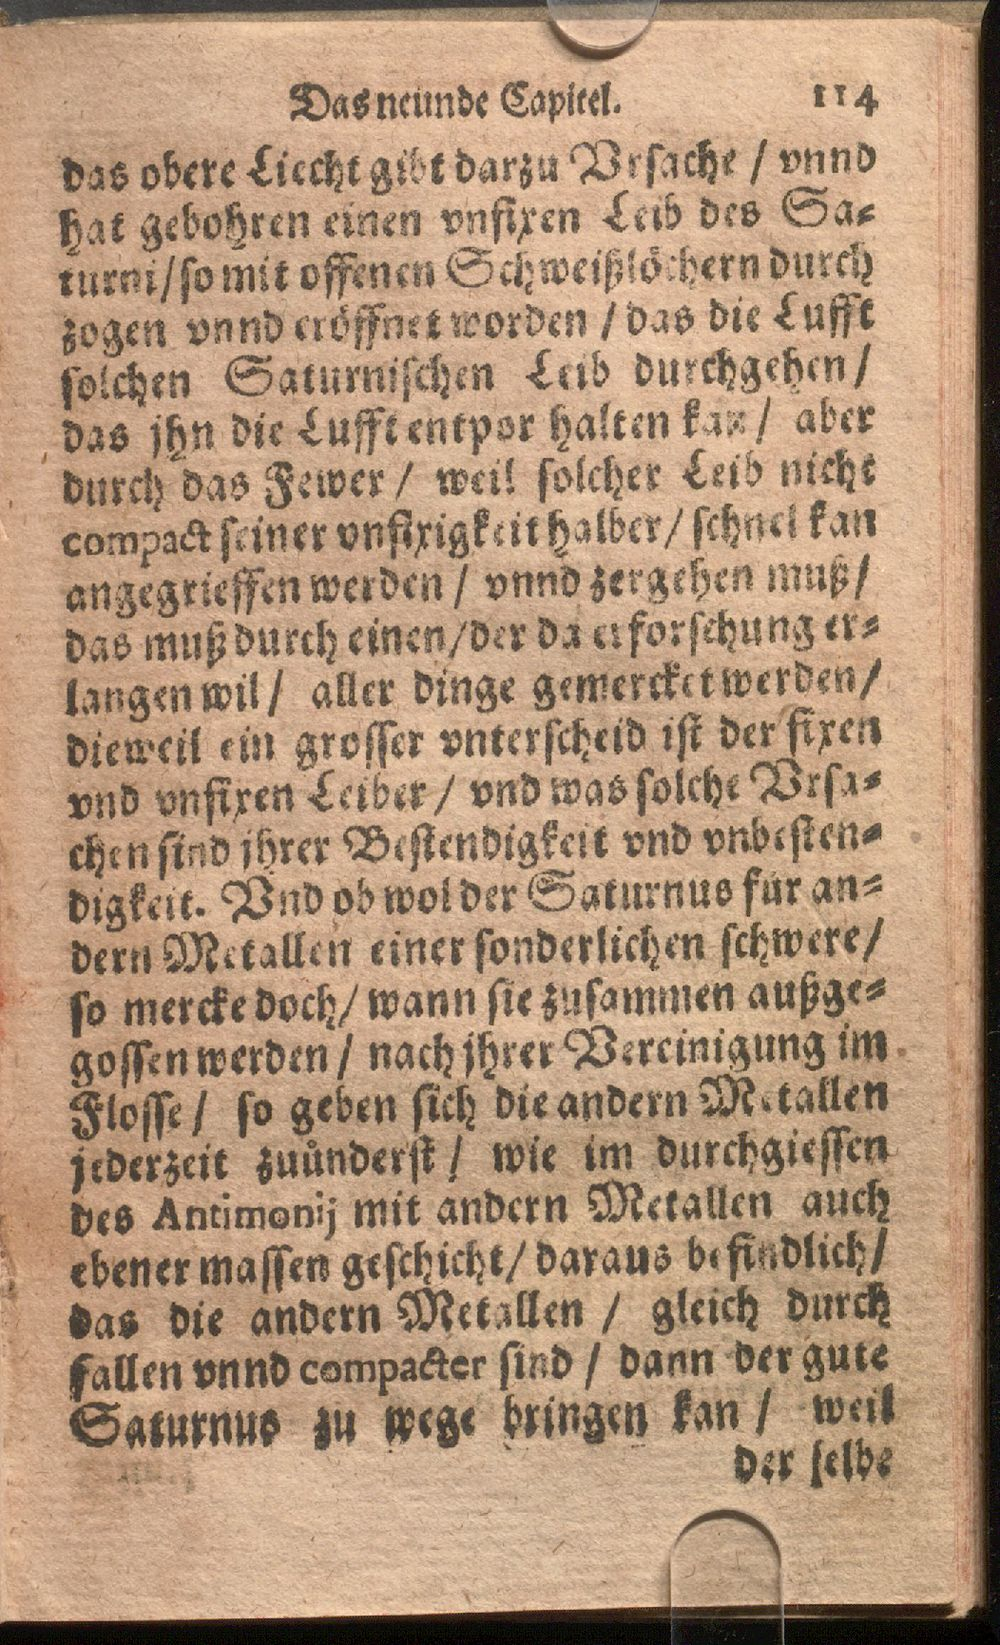 Das neunde Capitel. 114
das obere Liecht gibt darzu Vrsache / vnnd
hat gebohren einen vnfixen Leib des Sa=
turni/so mit offenen Schweißlöchern durch
zogen vnnd eröffnet worden / das die Lufft
solchen Saturnischen Leib durchgehen/
das jhn die Lufft entpor halten kan/ aber
durch das Fewer/ weil solcher Leib nicht
compact seiner vnfixigkeit halber/ schnel kan
angegrieffen werden / vnnd zergehen muß/
das muß durch einen/der da erforschung er=
langen wil/ aller dinge gemercket werden/
dieweil ein grosser vnterscheid ist der fixen
vnd vnfixen Leiber/ vnd was solche Vrsa=
chen sind jhrer Bestendigkeit vnd vnbesten=
digkeit. Vnd ob wol der Saturnus für an=
dern Metallen einer sonderlichen schwere/
so mercke doch/ wann sie zusammen außge=
gossen werden / nach jhrer Vereinigung im
Flosse/ so geben sich die andern Metallen
jederzeit zuůnderst/ wie im durchgiessen
des Antimonij mit andern Metallen auch
ebener massen geschicht/ daraus befindlich/
das die andern Metallen / gleich durch
fallen vnnd compacter sind / dann der gute
Saturnus zu wege bringen kan / weil
der selbe